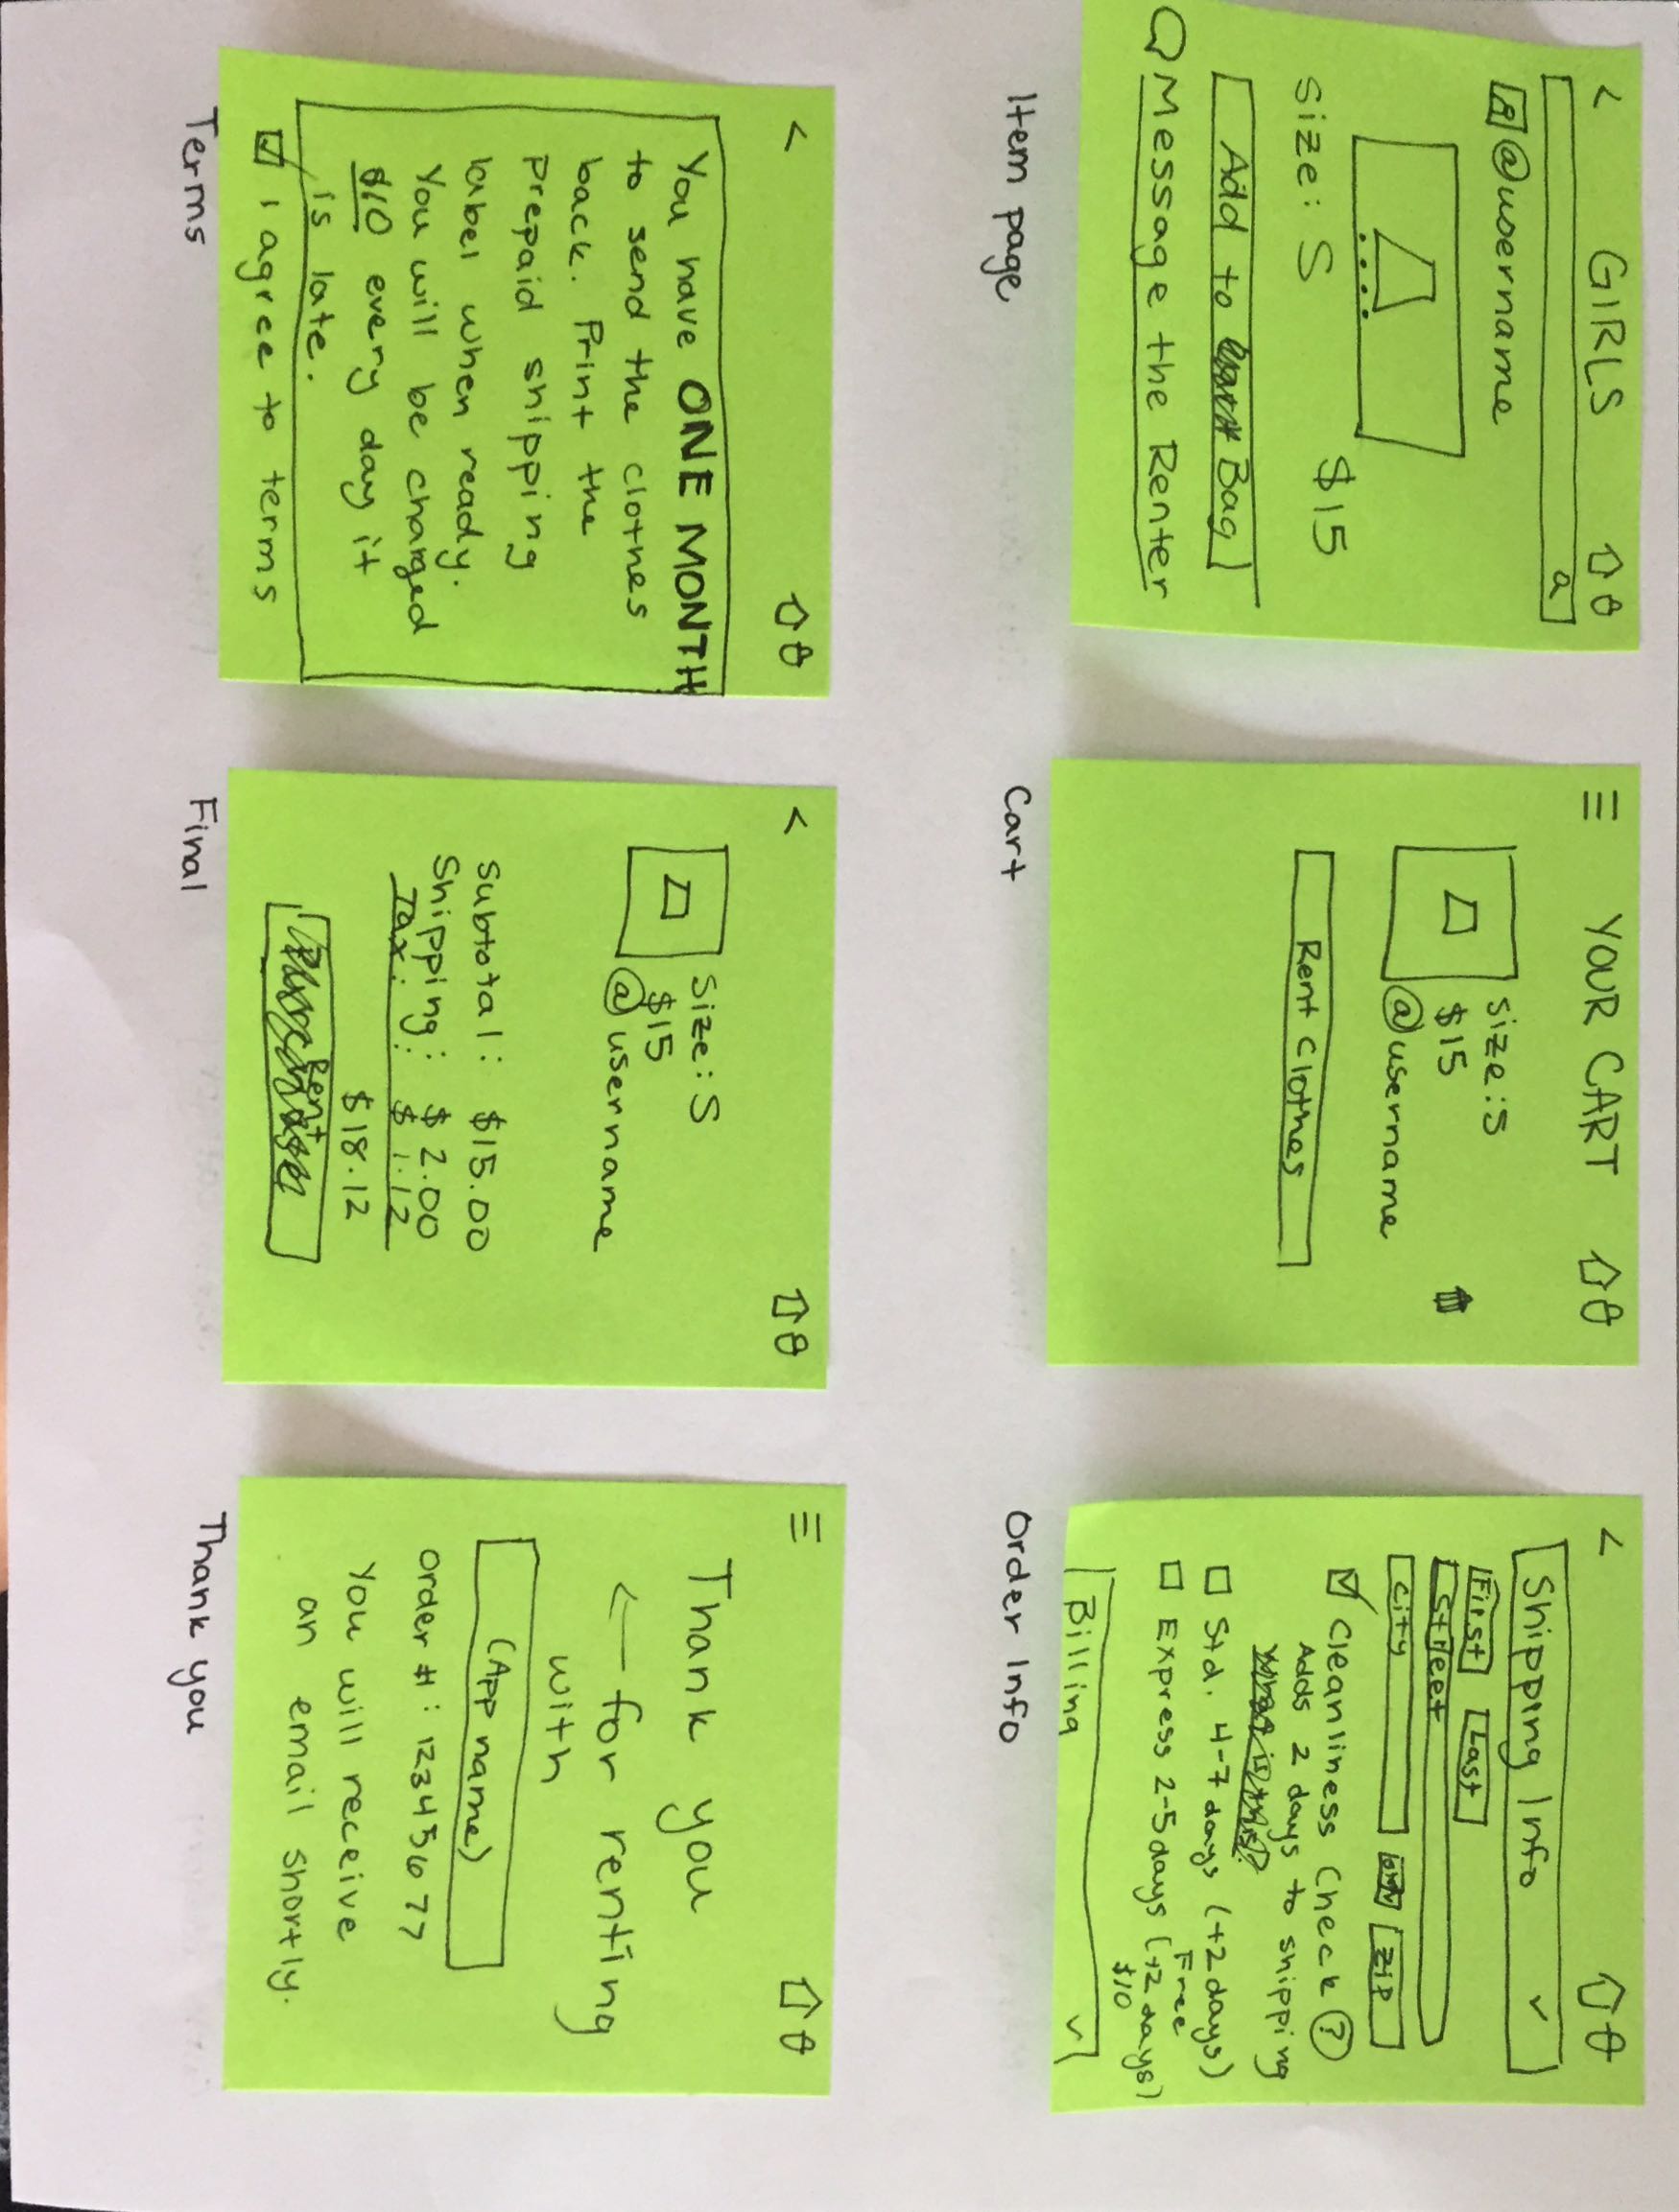 < GIRLS
a
@username
$15
Size: S
Add to Bag
Message the Renter
Item page
YOUR CART
Size: S
$15
@username
Rent Clothes
Cart
<
Shipping Info
First Last
Street
City Zip
Cleanliness Check ?
Adds 2 days to shipping
What is this?
Std. 4-7 days (+2 days)
Free
Express 2-5 days (+2 days)
$10
Billing
Order Info
<
You have ONE MONTH
to send the clothes
back. Print the
prepaid shipping
label when ready.
You will be charged
$10 every day it
is late.
I agree to terms
Terms
<
Size: S
$15
@username
Subtotal: $15.00
Shipping: $2.00
Tax: $1.12
$18.12
Rent
Final
Thank you
for renting
with
(App name)
Order #: 12345677
You will receive
an email shortly.
Thank you